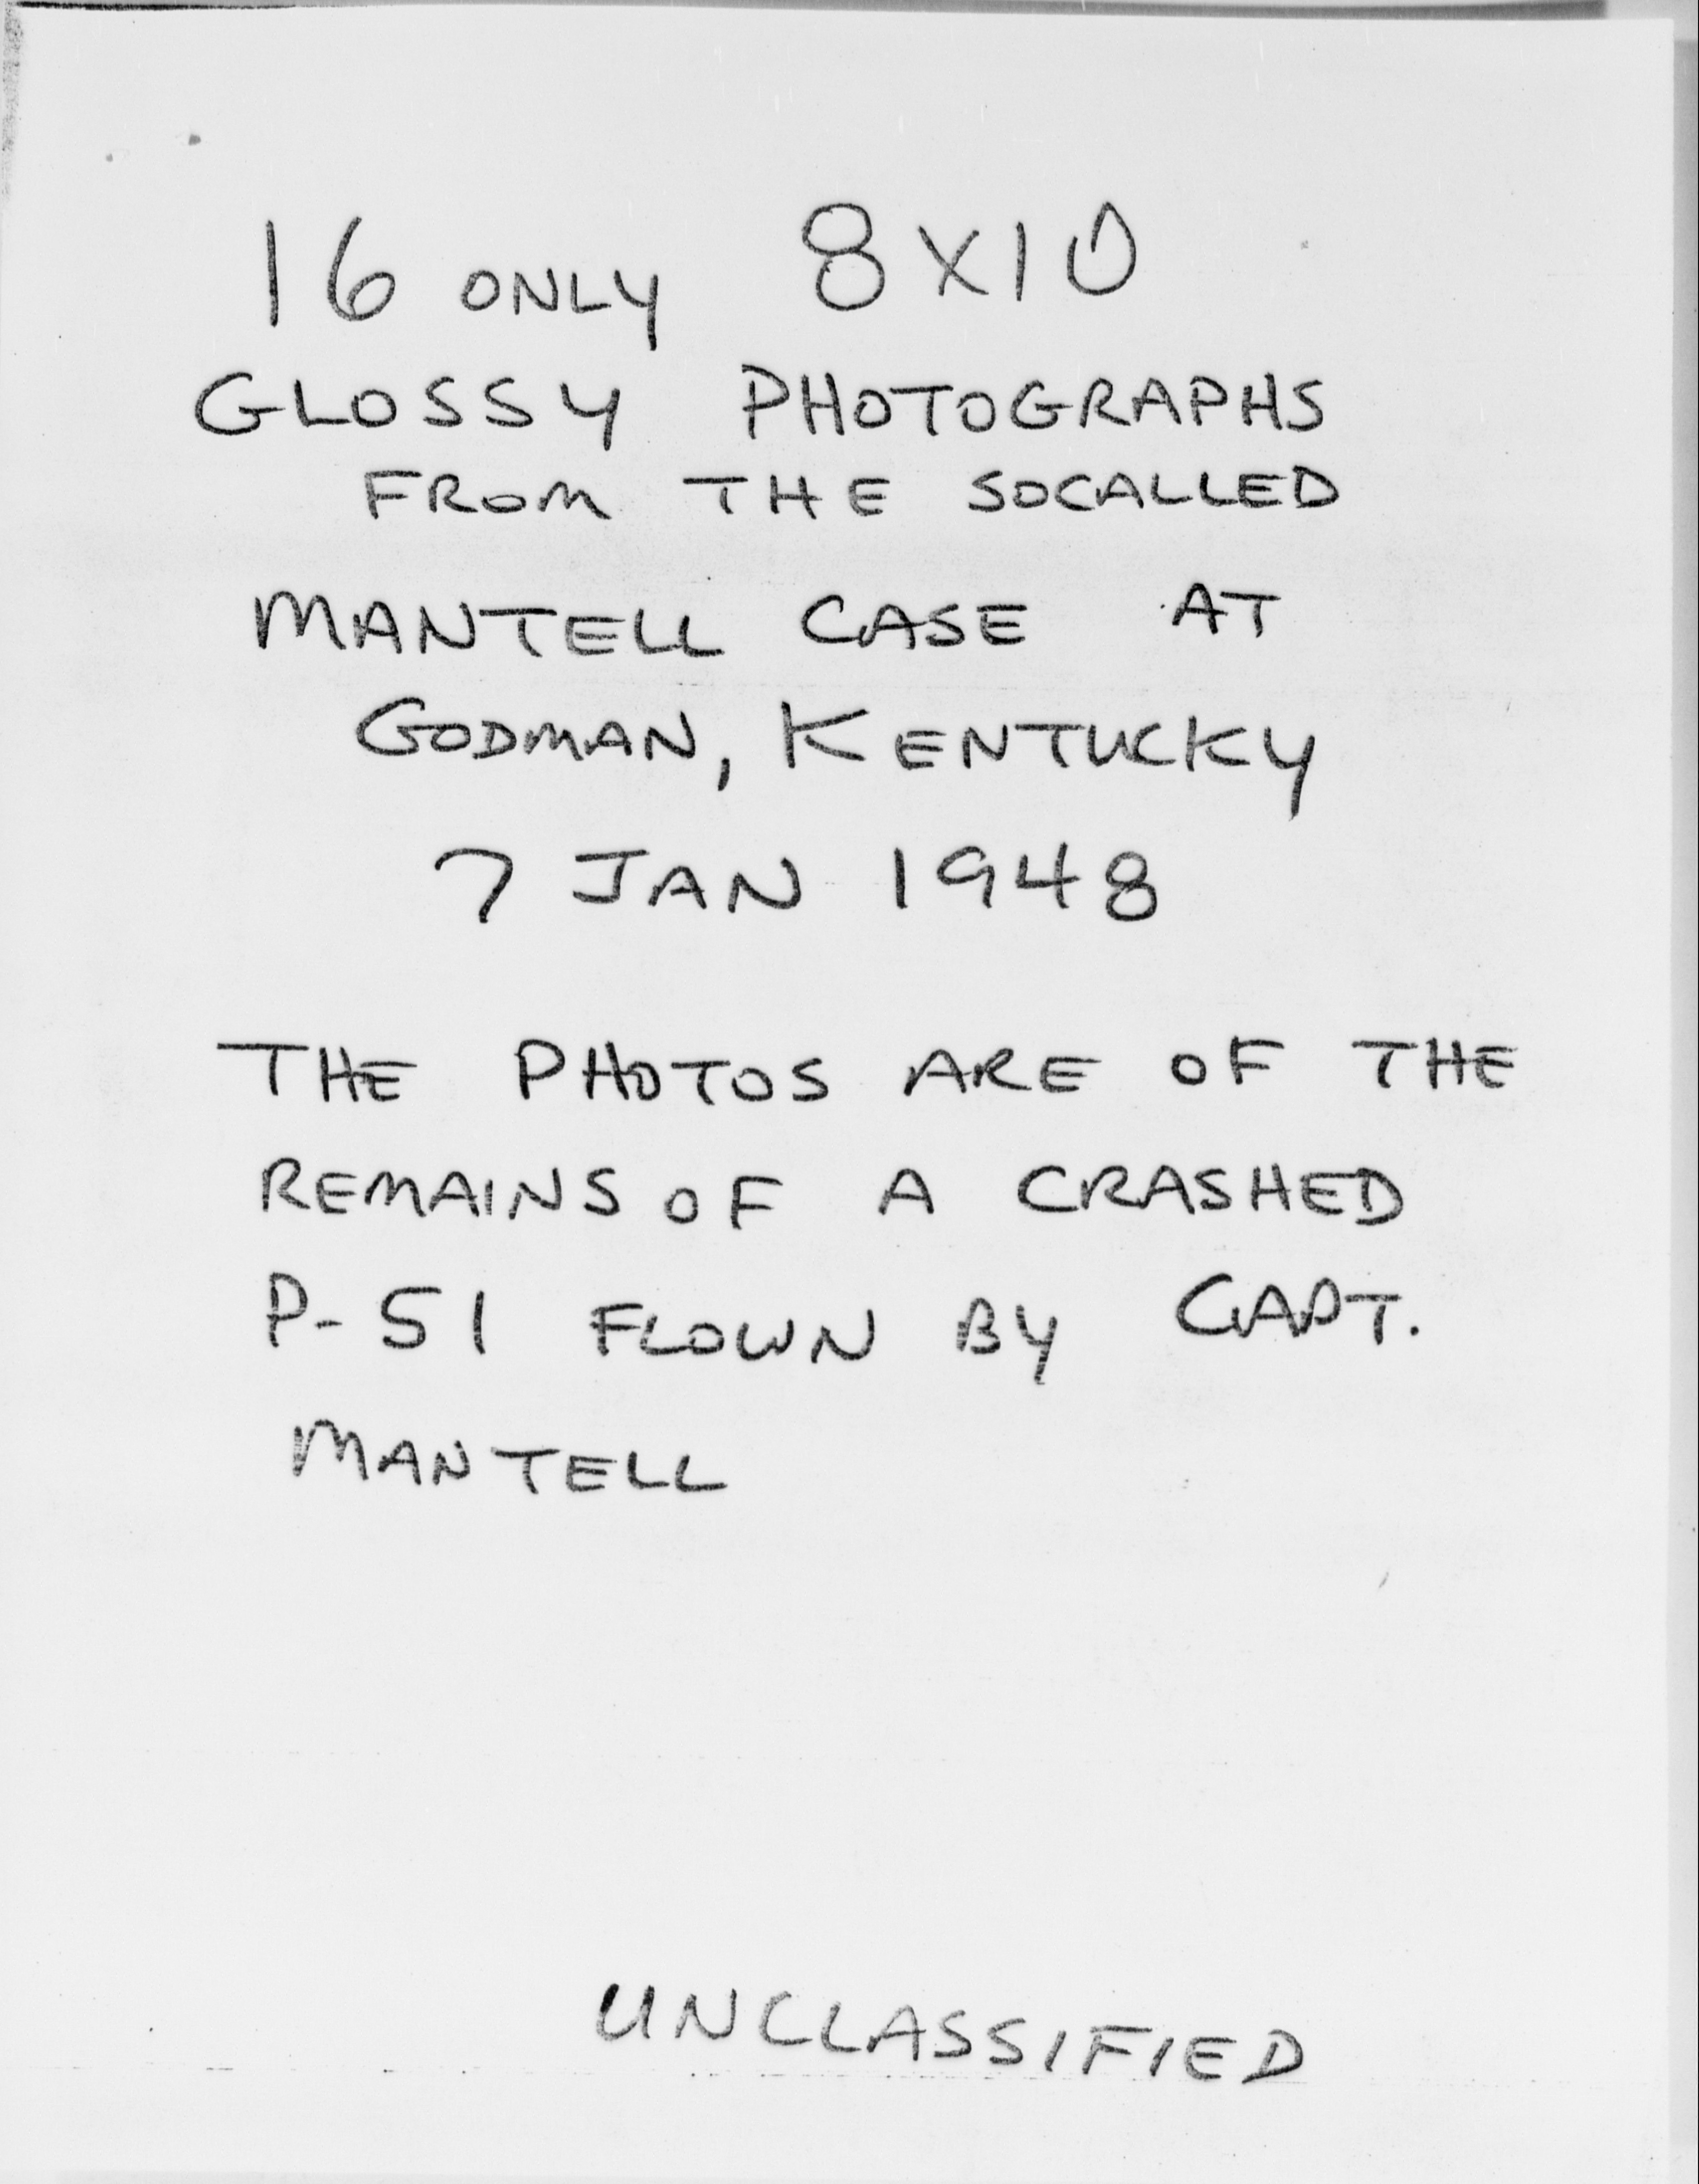 16 ONLY 8X10
GLOSSY PHOTOGRAPHS
FROM THE SOCALLED
MANTELL CASE AT
GODMAN, KENTUCKY
7 JAN 1948
THE PHOTOS ARE OF THE
REMAINS OF A CRASHED
P-51 FLOWN BY CAPT.
MANTELL
UNCLASSIFIED